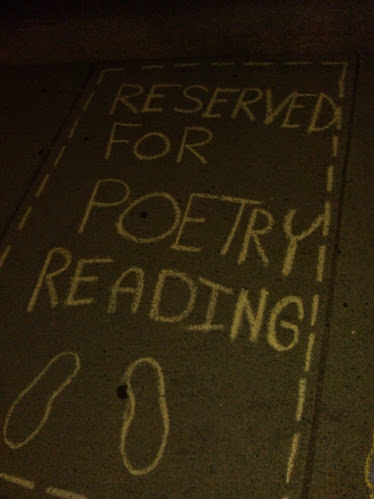 RESERVED
FOR
POETRY
READING